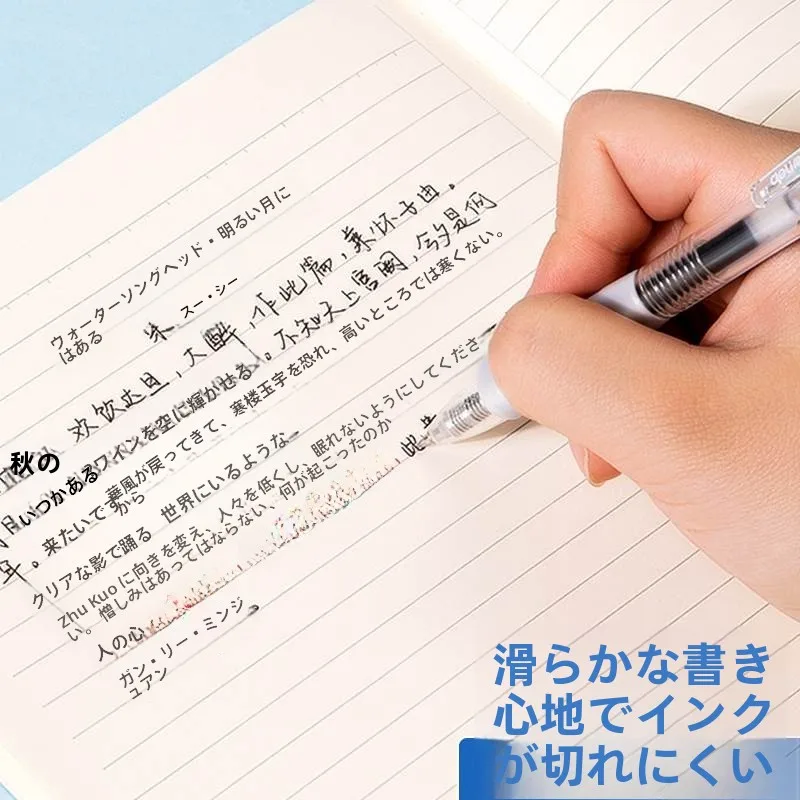 ウォーターソングヘッド・明るい月に
はある
朱 スー・シー
欢饮达旦,大醉,作此篇,兼怀子由。
。不知天上宫阙,今夕是何
ワインを空に輝かせる。
秋の
いつかある
華風が戻ってきて、寒楼玉宇を恐れ、高いところでは寒くない。
年。来たいですから
世界にいるような
クリアな影で踊る
Zhu Kuo に向きを変え、人々を低くし、眠れないようにしてくださ
い。憎しみはあってはならない、何が起こったのか
此
人の心
ガン・リー・ミンジ
ュアン
滑らかな書き
心地でインク
が切れにくい